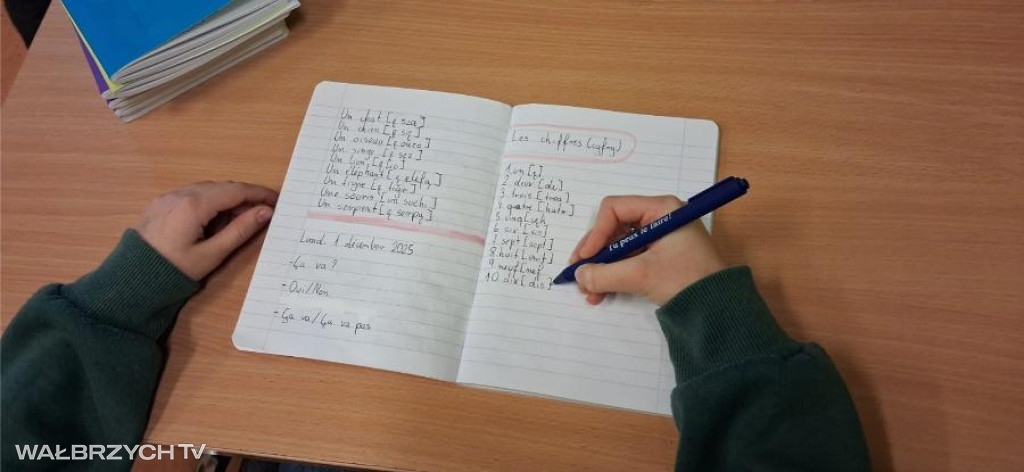 Un chat [ą sza]
Un chien [ą
Un oiseau [ą
Un singe [ą
Un lion [ą
Un éléphant [ą elefą]
Un tigre [ą tigr]
Une souris
Un serpent [ą serpą]
Lundi 1 décembre 2025
- Ça va?
- Oui/Non
- Ça va/Ça va pas
Les chiffres (cyfry)
1. un [ą]
2. deux [du]
3. trois
4. quatre
5. cinq
6. six [sis]
7. sept [sept]
8. huit
9. neuf [nef]
10. dix [dis]
Tu peux le faire!
WAŁBRZYCH TV